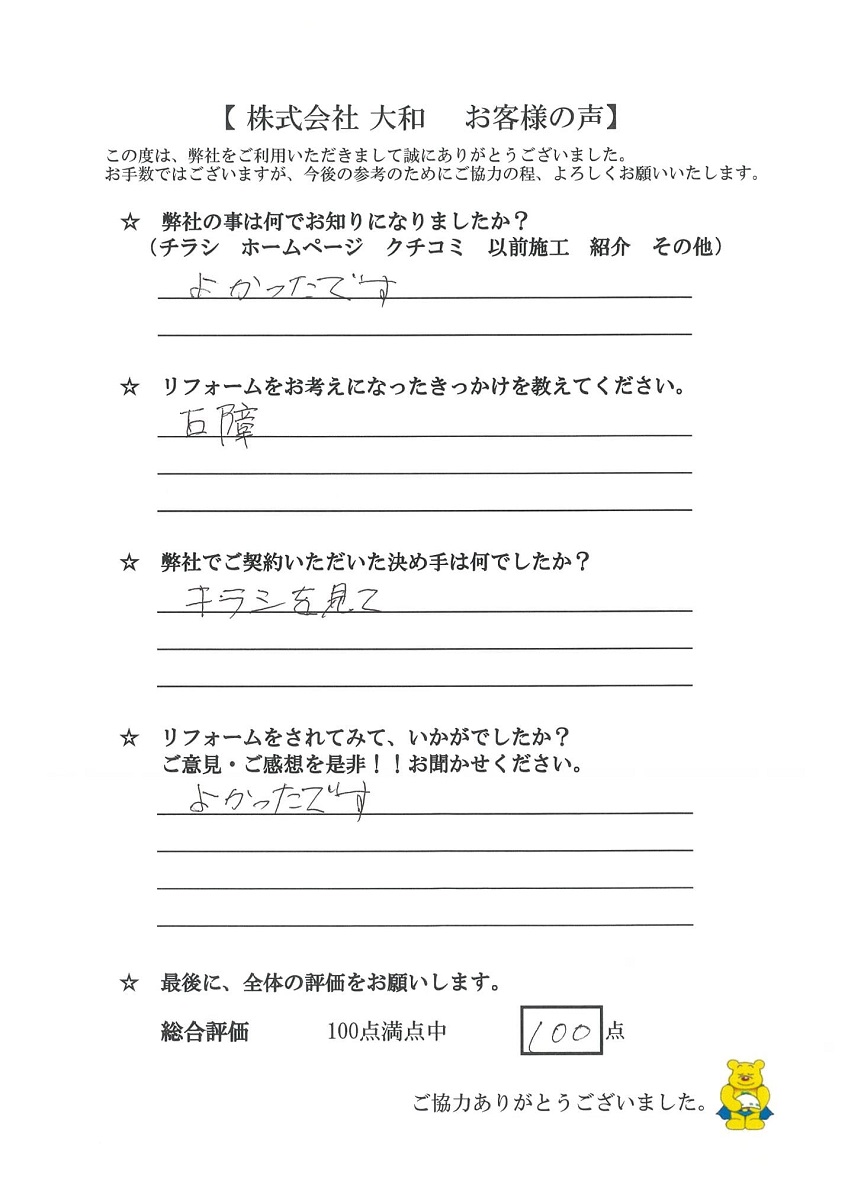 【 株式会社 大和　お客様の声】
この度は、弊社をご利用いただきまして誠にありがとうございました。
お手数ではございますが、今後の参考のためにご協力の程、よろしくお願いいたします。
☆　弊社の事は何でお知りになりましたか？
（チラシ　ホームページ　クチコミ　以前施工　紹介　その他）
よかったです
☆　リフォームをお考えになったきっかけを教えてください。
古障
☆　弊社でご契約いただいた決め手は何でしたか？
チラシを見て
☆　リフォームをされてみて、いかがでしたか？
ご意見・ご感想を是非！！お聞かせください。
よかったです
☆　最後に、全体の評価をお願いします。
総合評価　100点満点中　100 点
ご協力ありがとうございました。